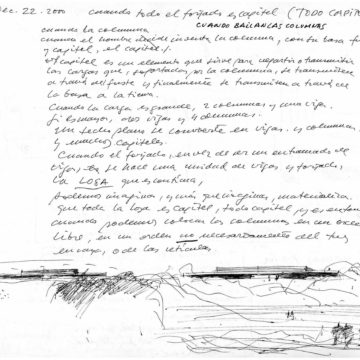 Dec. 22. 2000 cuando todo el forjado es capitel (TODO CAPIT
CUANDO BAILAN LAS COLUMNAS
cuando la columna
cuando el hombre inventa la columna, con su basa
y capitel, el capitel
el capitel es un elemento que sirve para repartir o transmitir
las cargas que, soportados por la columna, se transmiten
a través del fuste y finalmente se transmiten a través de
la basa a la tierra.
Cuando la carga es grande, 2 columnas y una viga.
Si es mayor, dos vigas y 4 columnas.
Un techo plano se convierte en vigas y columnas
y muchos capiteles.
Cuando el forjado, en vez de ser un entramado de
vigas, se hace una unidad de vigas y forjado,
la LOSA que es continua,
podemos imaginar, y más que imaginar, materializar,
que toda la losa es capitel, todo capitel y es entonces
cuando podemos colocar las columnas en un orden
libre, en un orden no necesariamente del
o de las retículas